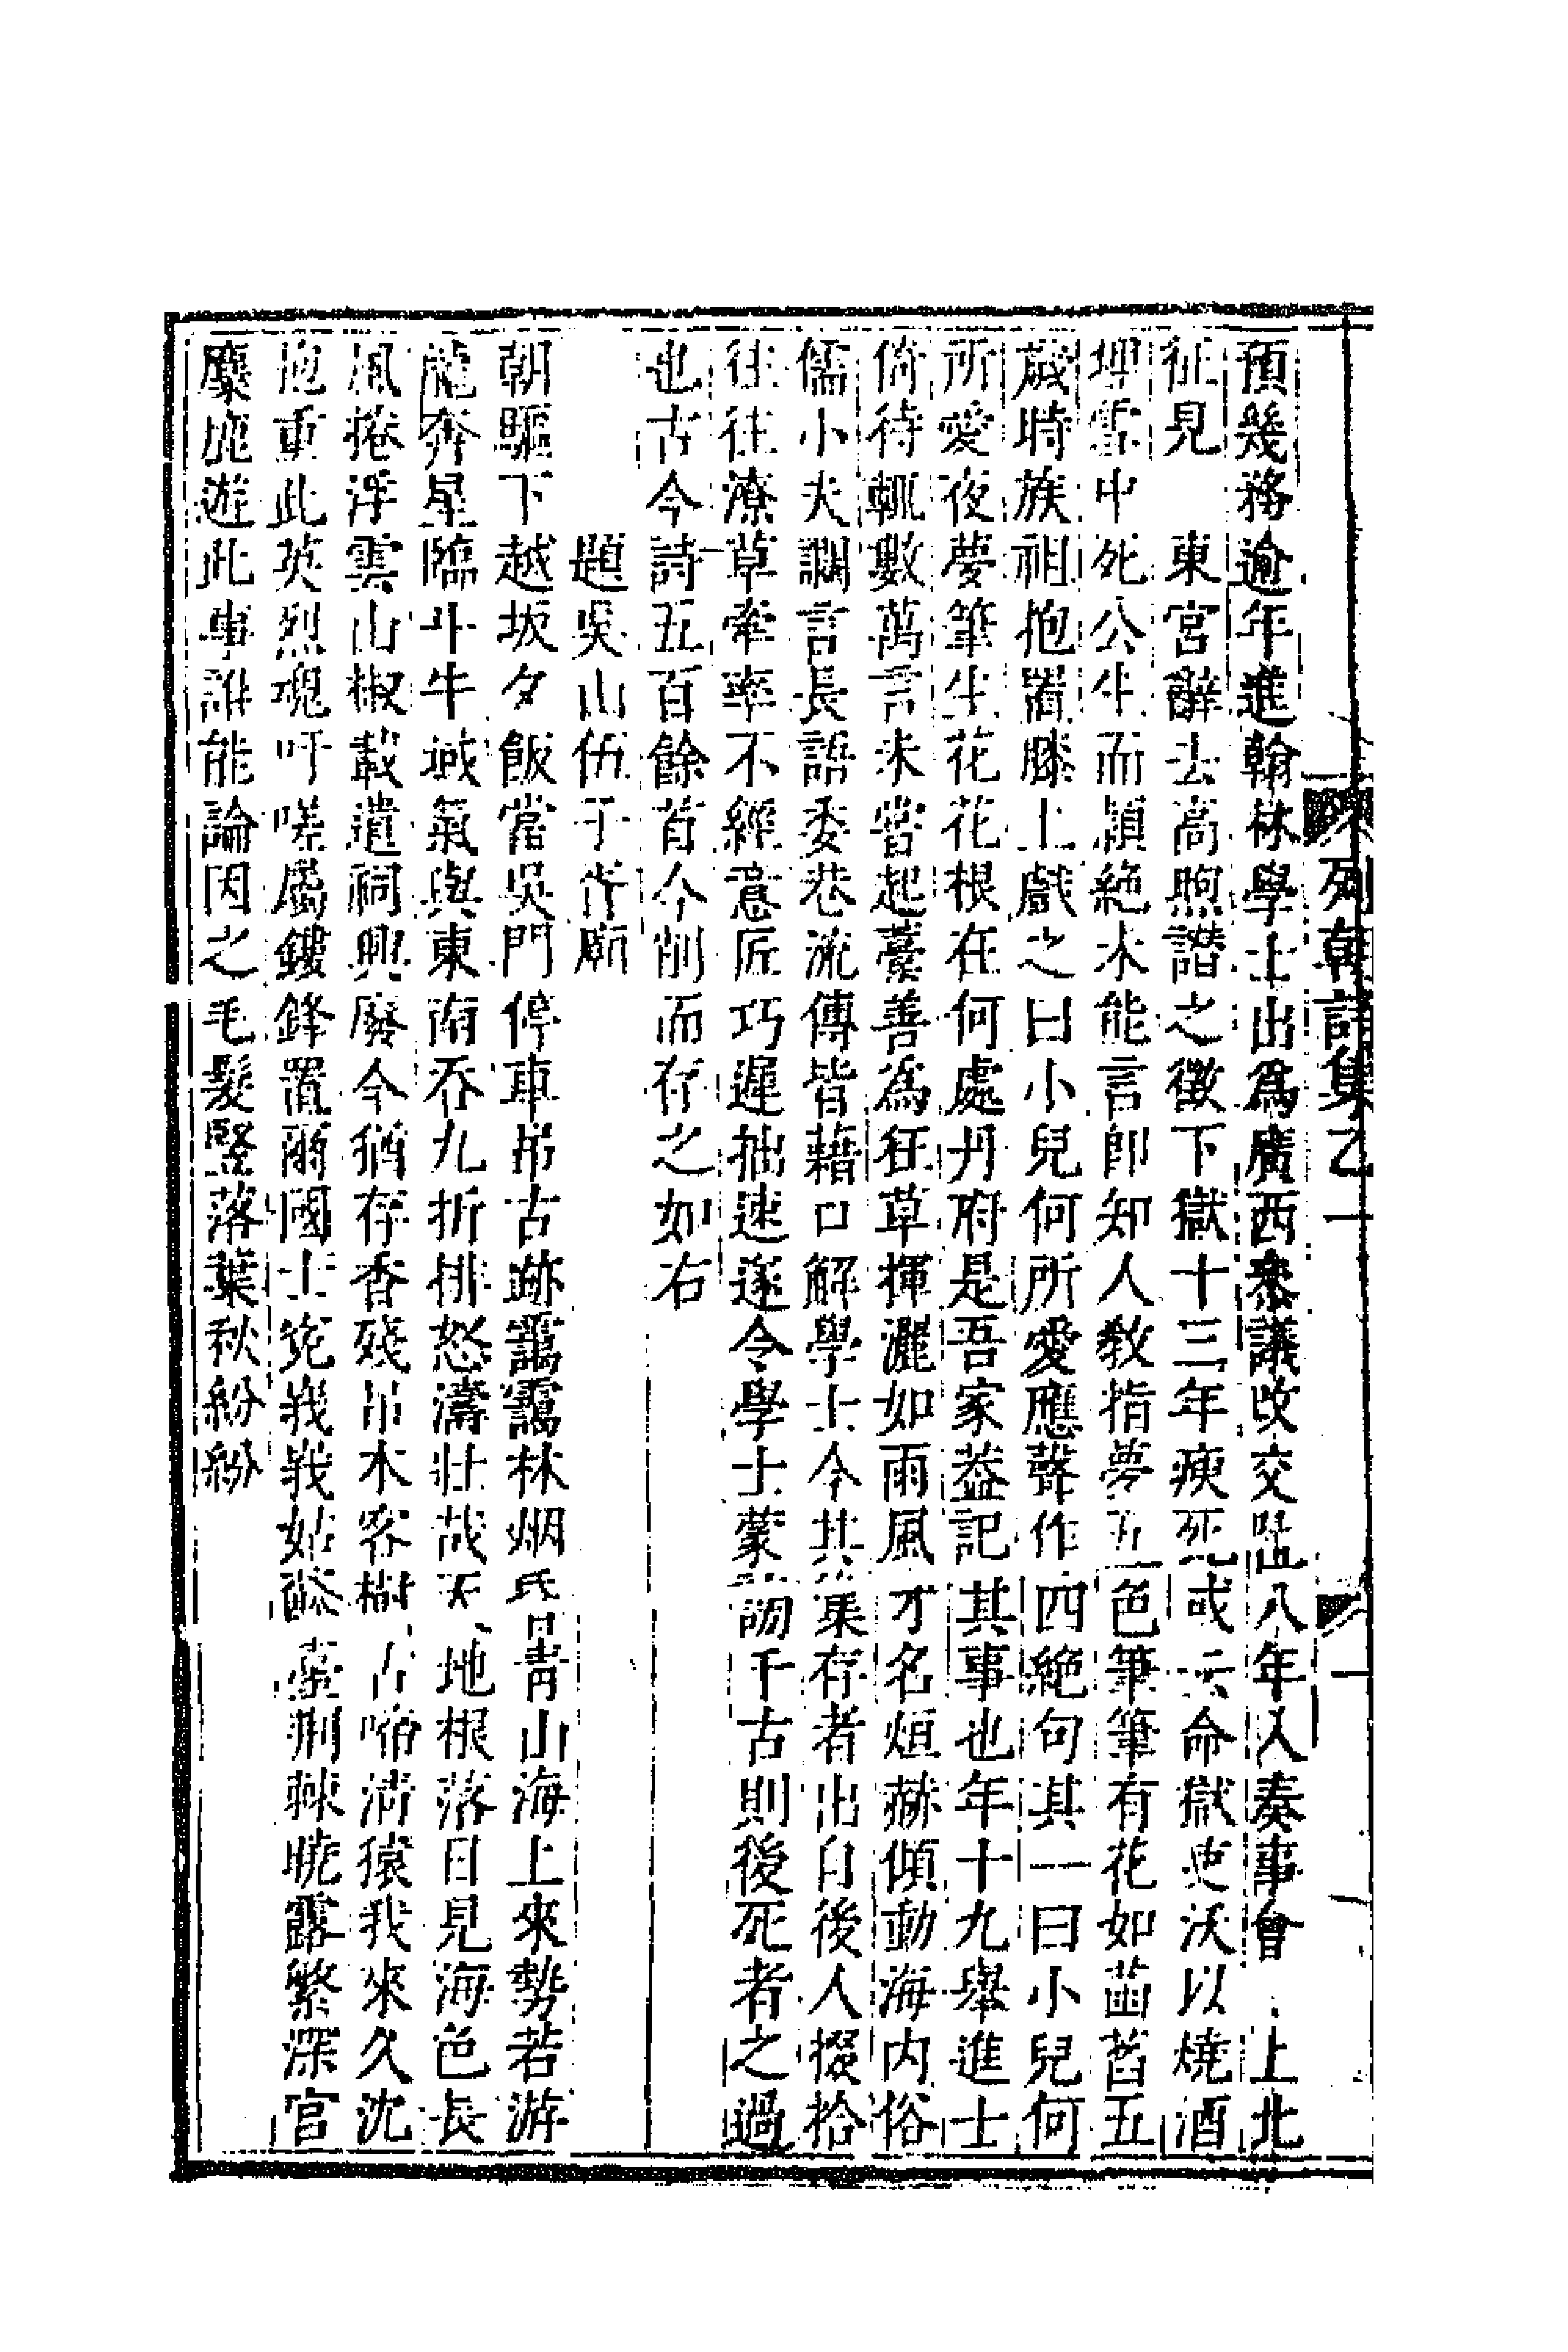 列朝詩集乙一
一
預幾務逾年進翰林學士出爲廣西叅議改交阯八年入奏事會 上北
征見 東宮辭去高煦譖之徵下獄十三年瘐死或云命獄吏沃以燒酒
埋雪中死公生而頴絶未能言卽知人敎指夢五色筆筆有花如菡萏五
歲時族祖抱置膝上戲之曰小兒何所愛應聲作四絶句其一曰小兒何
所愛夜夢筆生花花根在何處丹府是吾家葢記其事也年十九舉進士
倚待輒數萬言未嘗起藁善爲狂草揮灑如雨風才名烜赫傾動海内俗
儒小夫讕言長語委巷流傳皆藉口解學士今其集存者出自後人掇拾
往往潦草牽率不經意匠巧遲拙速遂令學士蒙謗千古則後死者之過
也古今詩五百餘首今削而存之如右
題吳山伍子胥廟
朝驅下越坂夕飯當吳門停車弔古跡靄靄林烟昏青山海上來勢若游
龍奔星臨斗牛域氣與東南吞九折排怒濤壯哉天地根落日見海色長
風捲浮雲山椒載遺祠興廢今猶存香殘弔木客樹古啼淸猿我來久沈
抱重此英烈魂吁嗟屬鏤鋒置爾國士寃峩峩姑蘇臺荆棘曉露繁深宮
麋鹿遊此事誰能論因之毛髮竪落葉秋紛紛